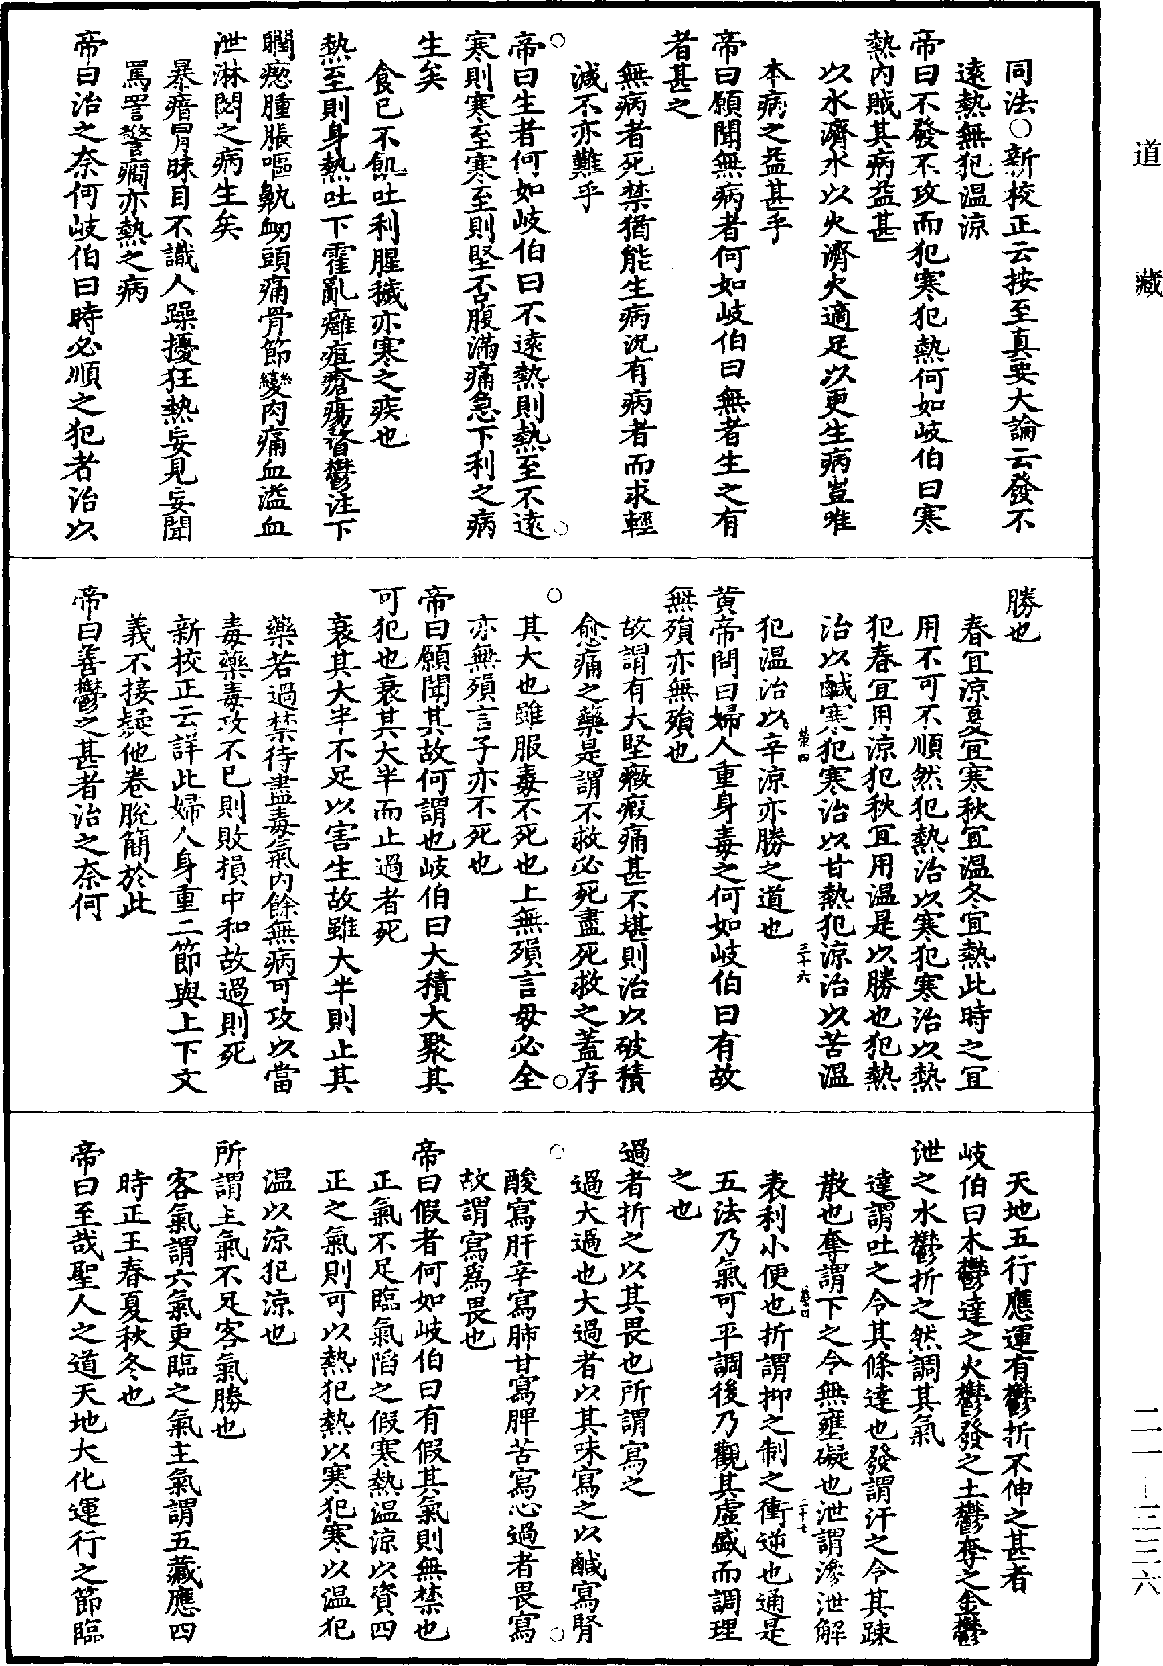 道藏
同法○新校正云按至真要大論云發不
遠熱無犯温涼
帝曰不發不攻而犯寒犯熱何如岐伯曰寒
熱內賊其病益甚
以水濟水以火濟火適足以更生病豈唯
本病之益甚乎
帝曰願聞無病者何如岐伯曰無者生之有
者甚之
無病者死禁猶能生病況有病者而求輕
減不亦難乎
帝曰生者何如岐伯曰不遠熱則熱至不遠
寒則寒至寒至則堅否腹滿痛急下利之病
生矣
食已不飢吐利腥穢亦寒之疾也
熱至則身熱吐下霍亂癰疽瘡瘍瞀鬱注下
瞤瘛腫脹嘔鼽衄頭痛骨節變肉痛血溢血
泄淋閟之病生矣
暴瘖冒昧目不識人躁擾狂熱妄見妄聞
罵詈驚癇亦熱之病
帝曰治之奈何岐伯曰時必順之犯者治以
勝也
春宜涼夏宜寒秋宜温冬宜熱此時之宜
用不可不順然犯熱治以寒犯寒治以熱
犯春宜用涼犯秋宜用温是以勝也犯熱
治以鹹寒犯寒治以甘熱犯涼治以苦温
犯温治以辛涼亦勝之道也
黄帝問曰婦人重身毒之何如岐伯曰有故
無殞亦無殞也
故謂有大堅癥瘕痛甚不堪則治以破積
愈痛之藥是謂不救必死盡死救之蓋存
其大也雖服毒不死也上無殞言母必全
亦無殞言子亦不死也
帝曰願聞其故何謂也岐伯曰大積大聚其
可犯也衰其大半而止過者死
衰其大半不足以害生故雖大半則止其
藥若過禁待盡毒氣內餘無病可攻以當
毒藥毒攻不已則敗損中和故過則死
新校正云詳此婦人身重二節與上下文
義不接疑他卷脫簡於此
帝曰善鬱之甚者治之奈何
天地五行應運有鬱折不伸之甚者
岐伯曰木鬱達之火鬱發之土鬱奪之金鬱
泄之水鬱折之然調其氣
達謂吐之令其條達也發謂汗之令其踈
散也奪謂下之令無壅礙也泄謂滲泄解
表利小便也折謂抑之制之衝逆也通是
五法乃氣可平調後乃觀其虛盛而調理
之也
過者折之以其畏也所謂寫之
過大過也大過者以其味寫之以鹹寫腎
酸寫肝辛寫肺甘寫脾苦寫心過者畏寫
故謂寫爲畏也
帝曰假者何如岐伯曰有假其氣則無禁也
正氣不足臨氣陷之假寒熱温涼以資四
正之氣則可以熱犯熱以寒犯寒以温犯
温以涼犯涼也
所謂主氣不足客氣勝也
客氣謂六氣更臨之氣主氣謂五藏應四
時正王春夏秋冬也
帝曰至哉聖人之道天地大化運行之節臨
二一－三三六